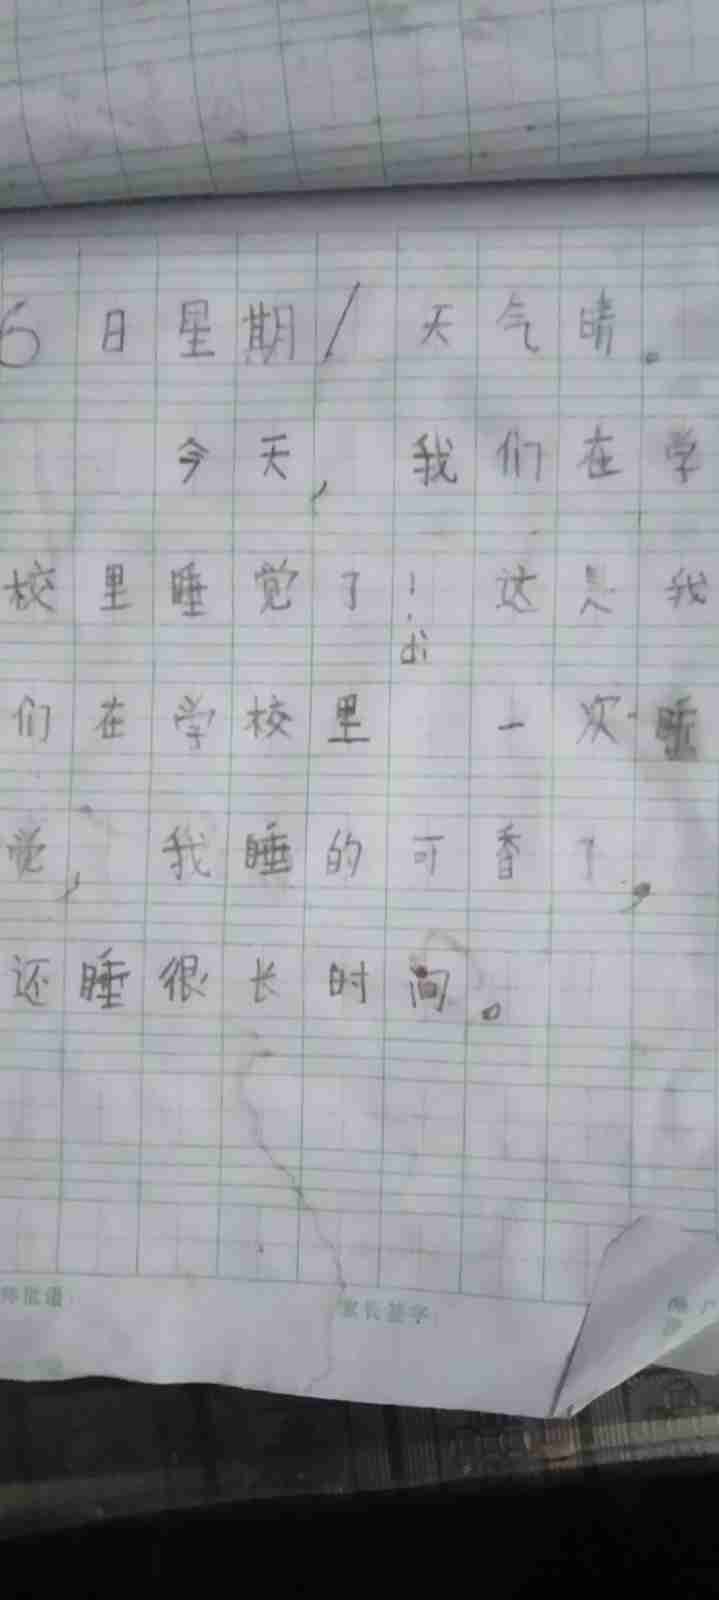 6日星期/天气晴。
今天,我们在学
校里睡觉了!这是我
di
们在学校里 一次睡
觉,我睡的可香了,
还睡很长时间。
师批语:
家长签字: